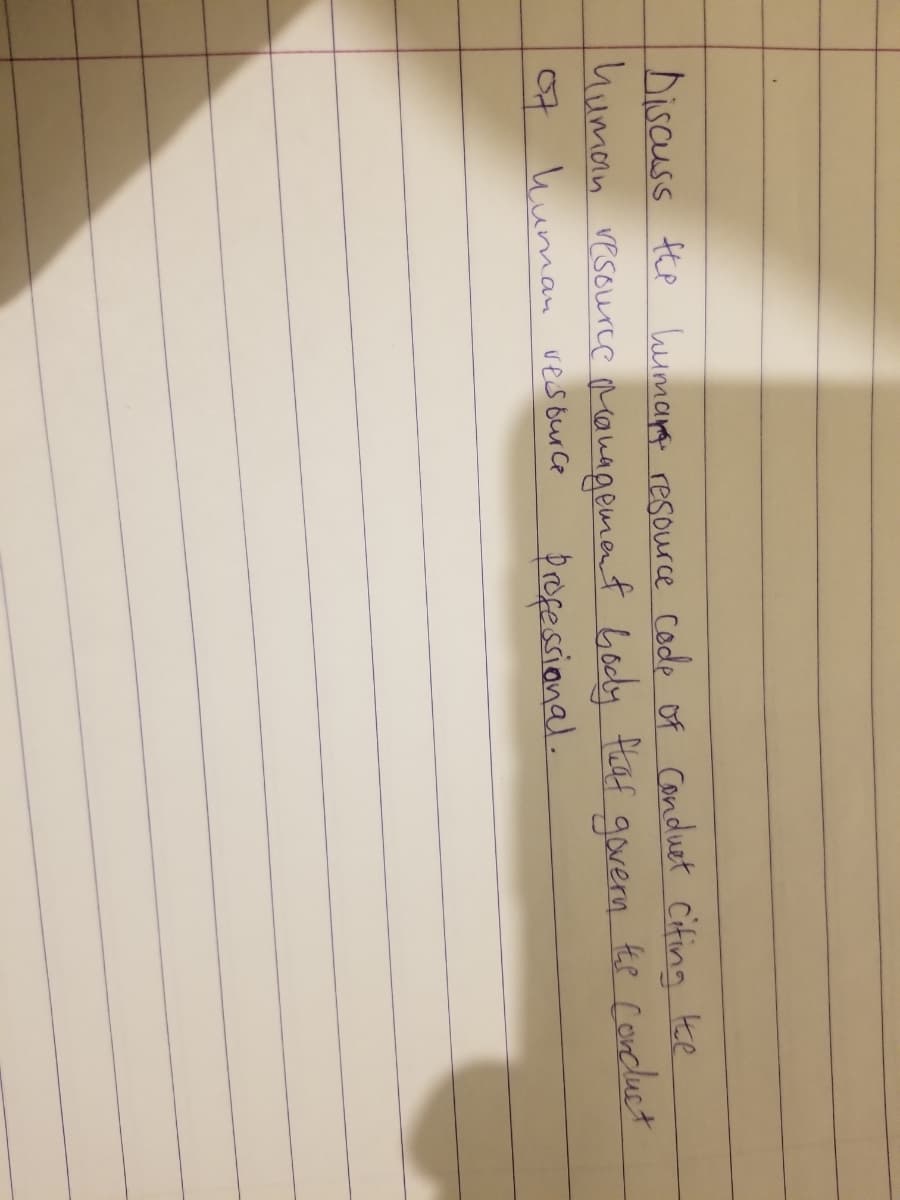 Discuss the human resource code of conduct citing the
human resource management body that govern the conduct
of human resource professional.